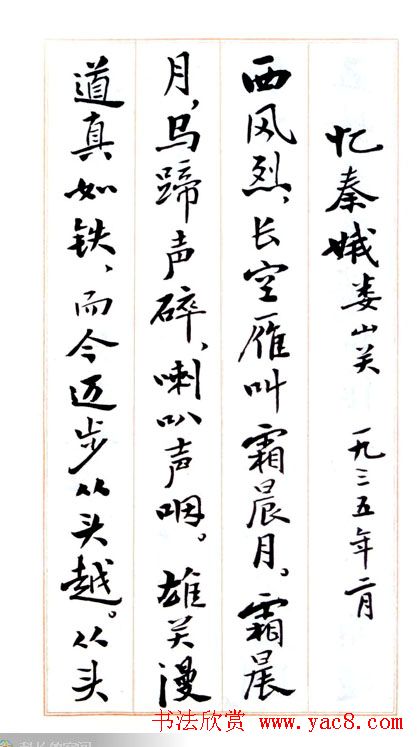 忆秦娥 娄山关 一九三五年二月
西风烈，长空雁叫霜晨月。霜晨
月，马蹄声碎，喇叭声咽。雄关漫
道真如铁，而今迈步从头越。从头
书法欣赏 www.yac8.com